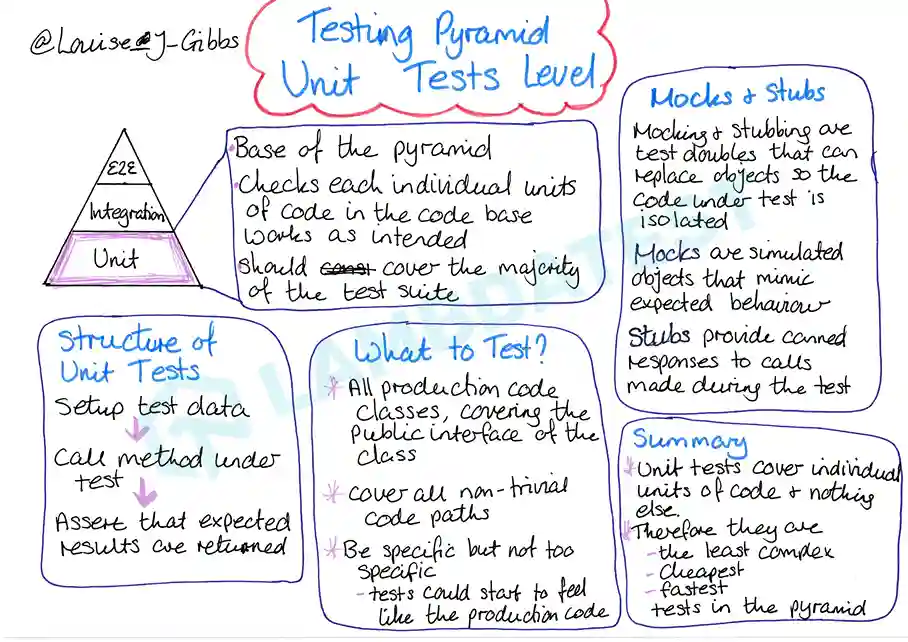 @Louise_J_Gibbs
Testing Pyramid
Unit Tests Level
E2E
Integration
Unit
Base of the pyramid
Checks each individual units
of code in the code base
works as intended
should const cover the majority
of the test suite
Mocks & Stubs
Mocking & Stubbing are
test doubles that can
replace objects so the
code under test is
isolated
Mocks are simulated
objects that mimic
expected behaviour
Stubs provide canned
responses to calls
made during the test
Structure of
Unit Tests
Setup test data
Call method under
test
Assert that expected
results are returned
What to Test?
* All production code
classes, covering the
public interface of the
class
* cover all non-trivial
code paths
* Be specific but not too
specific
- tests could start to feel
like the production code
Summary
* Unit tests cover individual
units of code & nothing
else.
* Therefore they are
- the least complex
- cheapest
- fastest
tests in the pyramid
LAMBDATEST